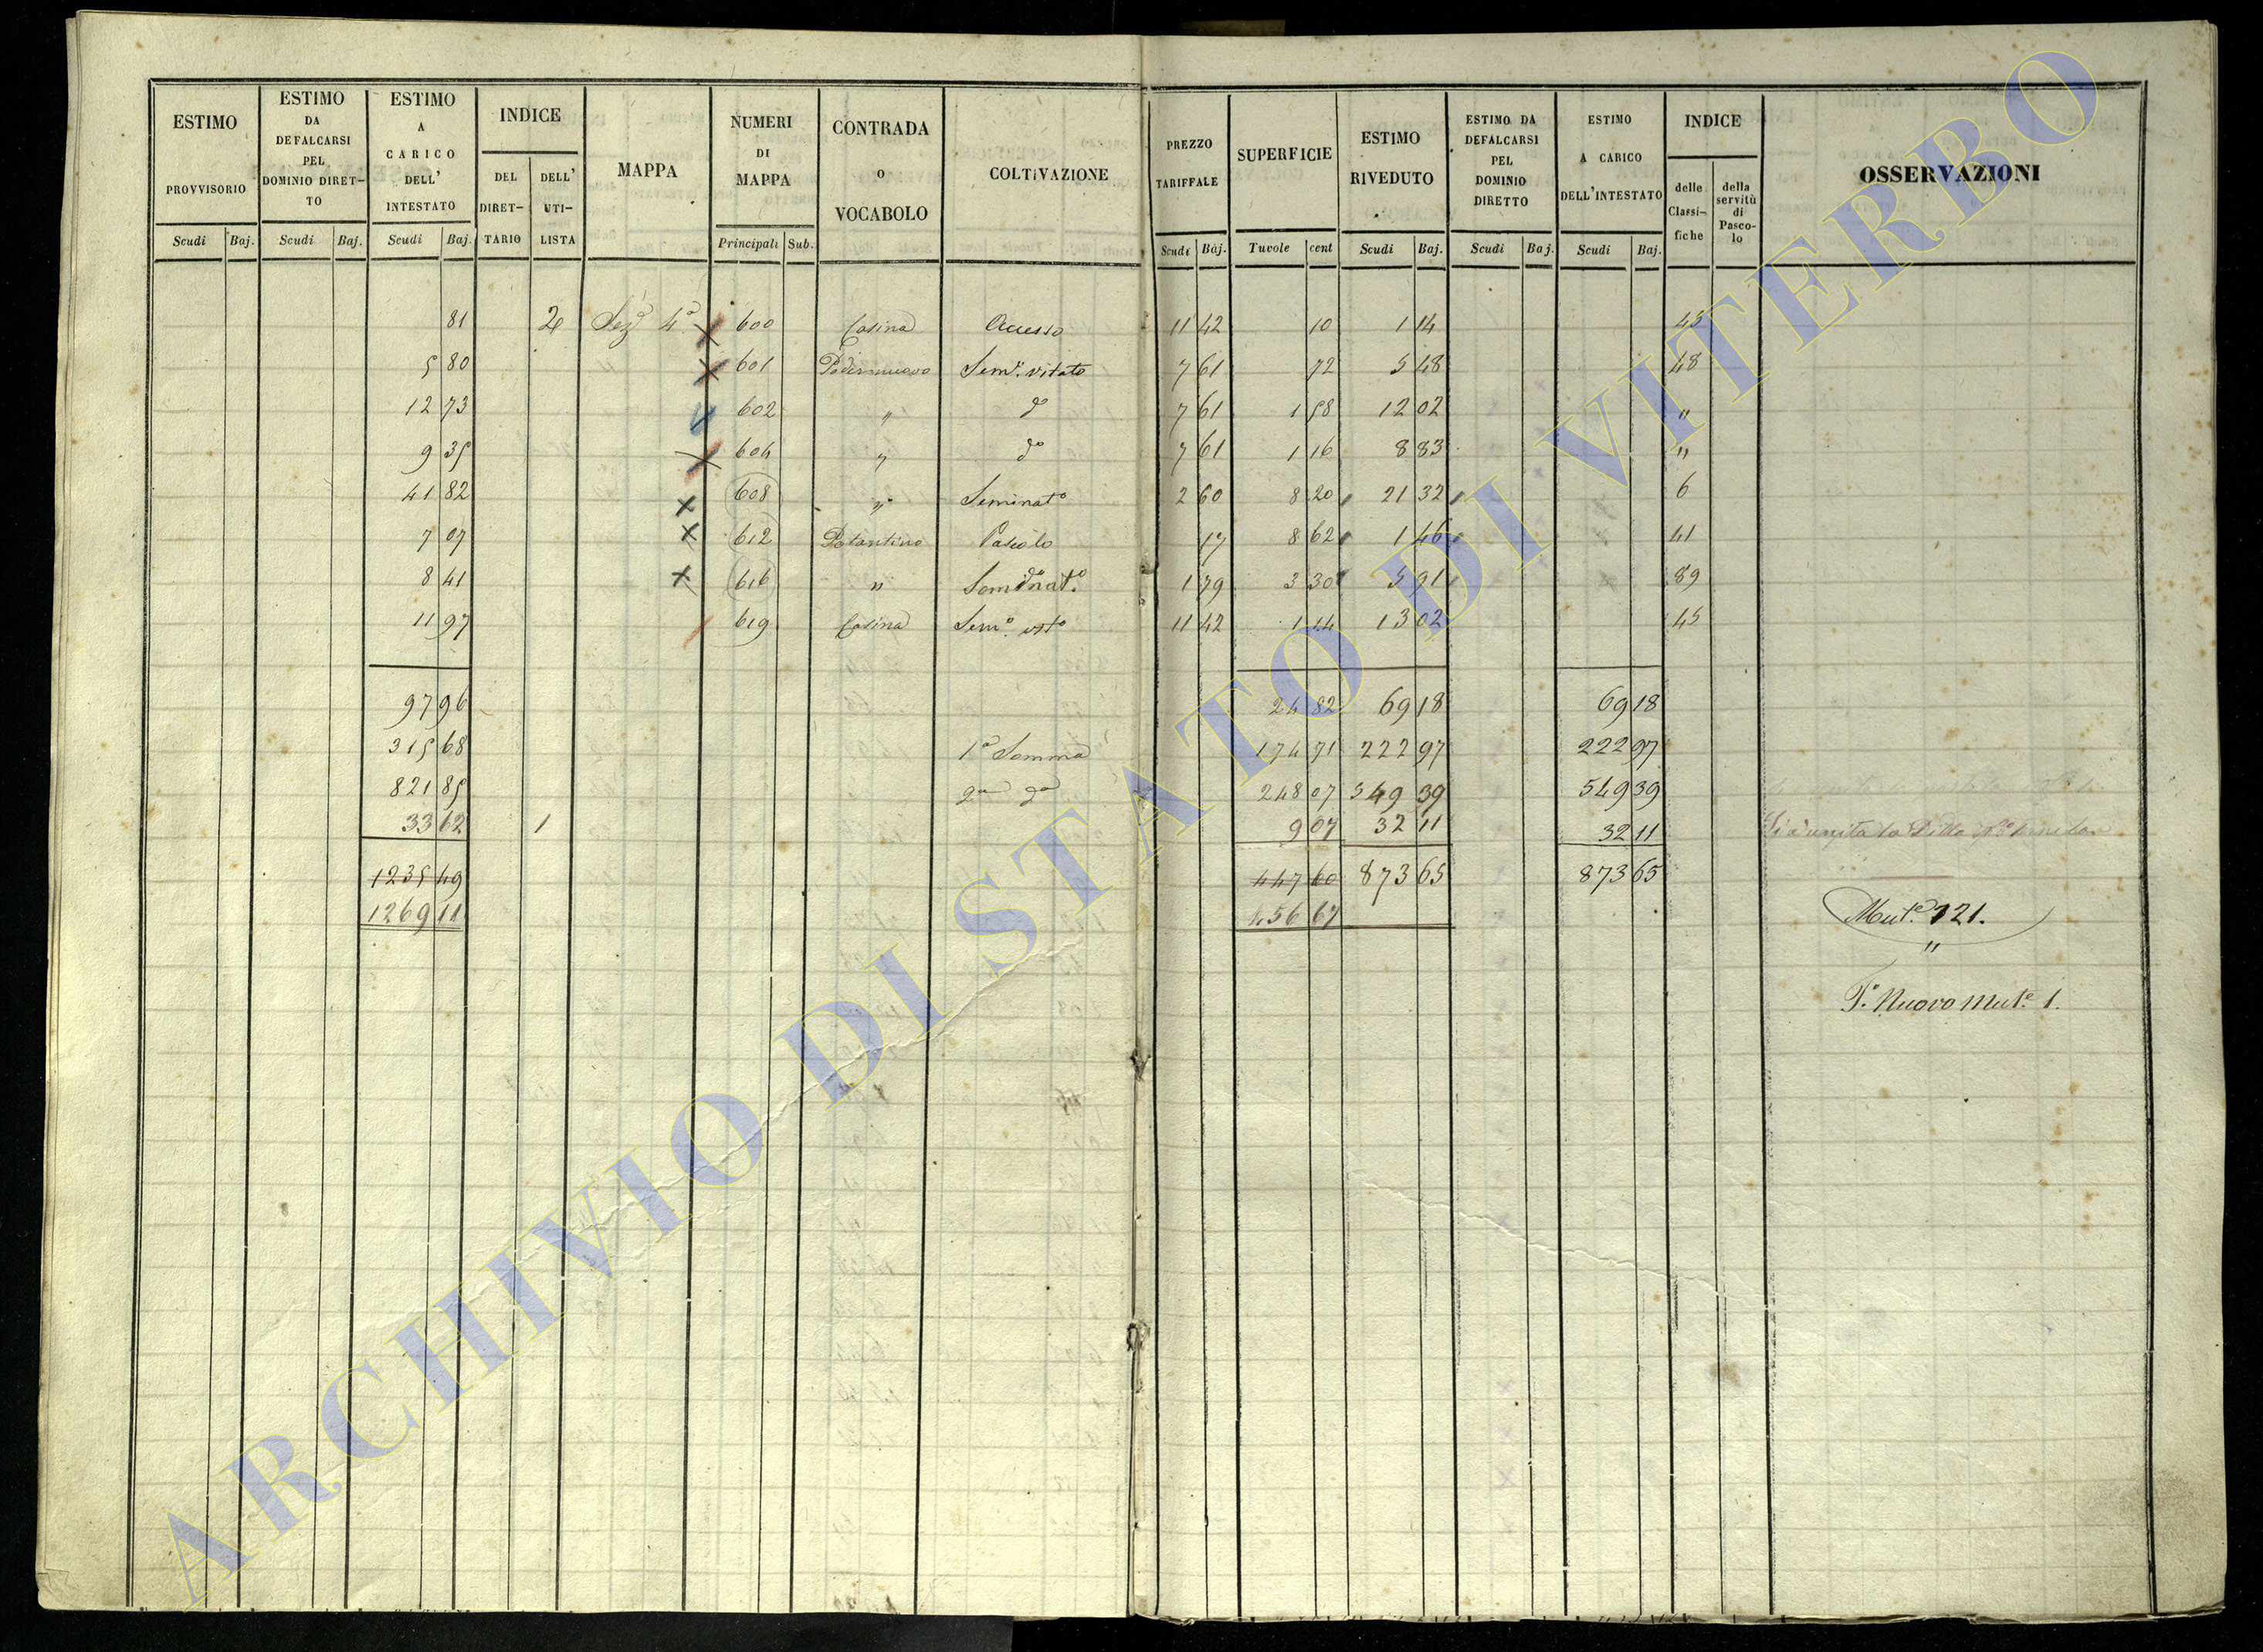 ESTIMO PROVVISORIO | ESTIMO DA DEFALCARSI PEL DOMINIO DIRET-TO | ESTIMO A CARICO DELL' INTESTATO | INDICE DEL DIRET-TARIO | DELL' UTI-LISTA | MAPPA | NUMERI DI MAPPA | CONTRADA O VOCABOLO | COLTIVAZIONE | PREZZO TARIFFALE | SUPERFICIE | ESTIMO RIVEDUTO | ESTIMO DA DEFALCARSI PEL DOMINIO DIRETTO | ESTIMO A CARICO DELL'INTESTATO | INDICE delle Classi-fiche | della servitù di Pasco-lo | OSSERVAZIONI
Scudi | Baj. | Scudi | Baj. | Scudi | Baj. | Principali | Sub. | Scudi | Baj. | Tavole | cent | Scudi | Baj. | Scudi | Baj. | Scudi | Baj.
81 | 2 | Sez.e 4a. | 600 | Casina | Accesso | 11 42 | 10 | 1 14 | 45
5 80 | " | 601 | Podernuovo | Sem.o vitato | 7 61 | 72 | 5 48 | 48
12 73 | 602 | " | do | 7 61 | 1 58 | 12 02 | "
9 35 | 604 | " | do | 7 61 | 1 16 | 8 83 | "
41 82 | 608 | " | Seminato | 2 60 | 8 20 | 21 32 | 6
7 07 | 612 | Pascolo | 17 | 8 62 | 1 46 | 41
8 41 | 616 | " | 1 79 | 3 30 | 5 91 | 89
11 97 | 619 | Casina | Sem.o vit.o | 11 42 | 1 14 | 13 02 | 45
97 96 | 24 82 | 69 18 | 69 18
315 68 | 1a Somma | 174 71 | 222 97 | 222 97
821 85 | 2a da | 248 07 | 549 39 | 549 39
33 62 | 1 | 9 07 | 32 11 | 32 11
1235 49 | 447 60 | 873 65 | 873 65
1269 11 | 456 67
Mut.e 121.
"
T.o Nuovo Mut.e 1.
ARCHIVIO DI STATO DI VITERBO